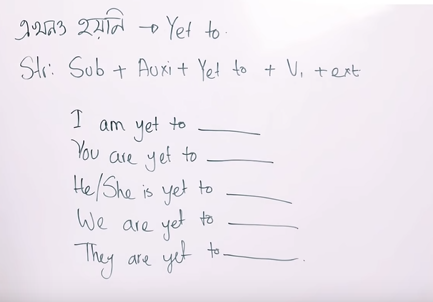 এখনও হয়নি → Yet to.
Str: Sub + Auxi + Yet to + V₁ + ext
I am yet to ______
You are yet to ______
He/She is yet to ______
We are yet to ______
They are yet to ______.